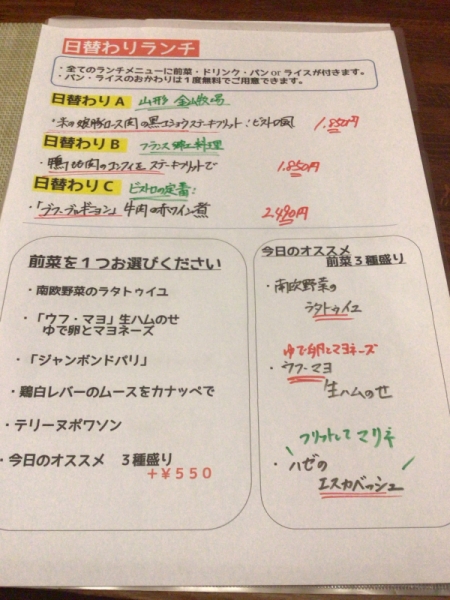 日替わりランチ
・全てのランチメニューに前菜・ドリンク・パン or ライスが付きます。
・パン・ライスのおかわりは１度無料でご用意できます。
日替わり A 山形 金山牧場
・米の娘豚ロース肉の黒コショウステーキフリット：ビストロ風 1.850円
日替わり B フランス郷土料理
・鴨モモ肉のコンフィを ステーキフリットで 1.850円
日替わり C ビストロの定番：
・「ブフ・ブルギニョン」牛肉の赤ワイン煮 2.490円
前菜を１つお選びください
・南欧野菜のラタトゥイユ
・「ウフ・マヨ」生ハムのせ
ゆで卵とマヨネーズ
・「ジャンボンドパリ」
・鶏白レバーのムースをカナッペで
・テリーヌポワソン
・今日のオススメ ３種盛り
＋￥５５０
今日のオススメ
前菜３種盛り
・南欧野菜の
ラタトゥイユ
ゆで卵とマヨネーズ
・ウフ・マヨ
生ハムのせ
フリットして マリネ
・ハゼの
エスカベッシュ